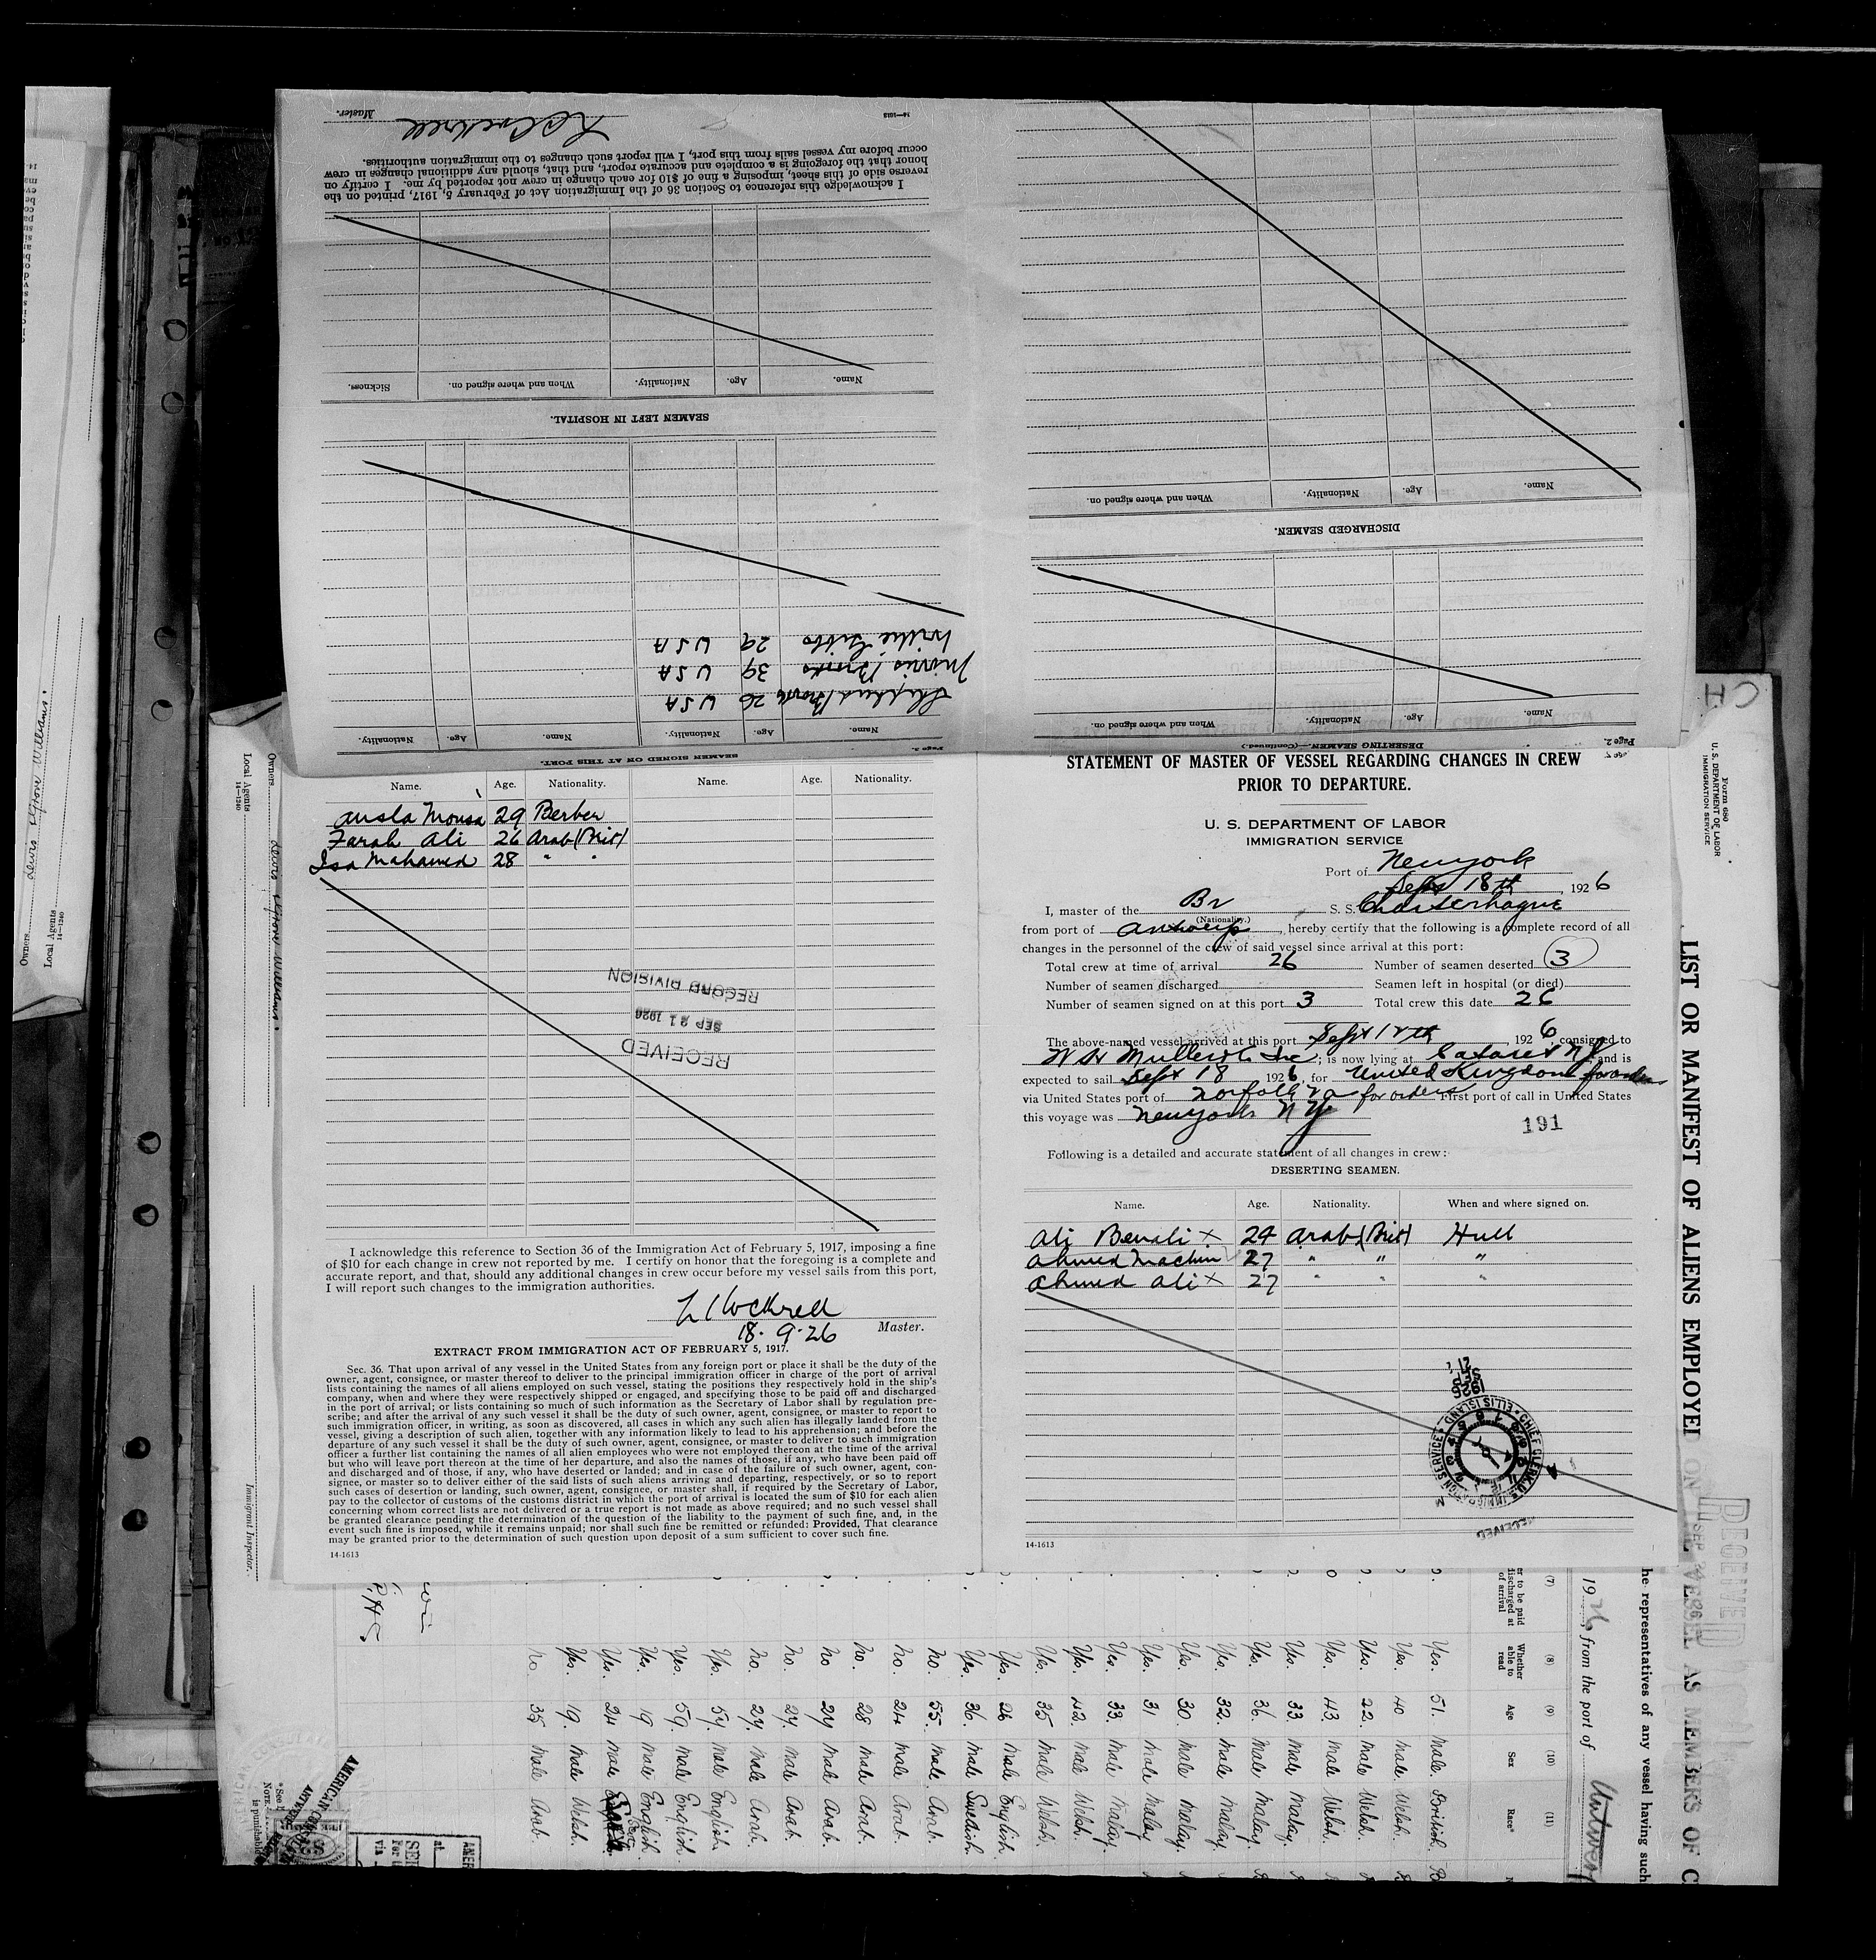 STATEMENT OF MASTER OF VESSEL REGARDING CHANGES IN CREW
PRIOR TO DEPARTURE.
U. S. DEPARTMENT OF LABOR
IMMIGRATION SERVICE
Port of New York
Sept 18th, 1926
I, master of the Br S. S. Charterhague
(Nationality.)
from port of Antwerp, hereby certify that the following is a complete record of all
changes in the personnel of the crew of said vessel since arrival at this port:
Total crew at time of arrival 26 Number of seamen deserted 3
Number of seamen discharged Seamen left in hospital (or died)
Number of seamen signed on at this port 3 Total crew this date 26
The above-named vessel arrived at this port Sept 12th, 1926, consigned to
W H Muller & Co Inc; is now lying at NJ and is
expected to sail Sept 18 1926, for United Kingdom for orders
via United States port of Norfolk Va for orders First port of call in United States
this voyage was New York N Y
191
Following is a detailed and accurate statement of all changes in crew:
DESERTING SEAMEN.
Name. Age. Nationality. When and where signed on.
Ali Benali x 24 Arab (Brit) Hull
Ahmed Machin 27 " " "
Ahmed Ali x 27 " " "
1926
SEP
21
CHIEF CLERK, U.S. IMMIGRATION SERVICE • ELLIS ISLAND
RECEIVED
14-1613
Name. Age. Nationality. Name. Age. Nationality.
Mousa 29 Berber
Farah Ali 26 Arab (Brit)
Isa Mahamed 28 " "
RECEIVED
SEP 21 1926
RECORD DIVISION
I acknowledge this reference to Section 36 of the Immigration Act of February 5, 1917, imposing a fine
of $10 for each change in crew not reported by me. I certify on honor that the foregoing is a complete and
accurate report, and that, should any additional changes in crew occur before my vessel sails from this port,
I will report such changes to the immigration authorities.
Cockrell
18.9.26 Master.
EXTRACT FROM IMMIGRATION ACT OF FEBRUARY 5, 1917.
Sec. 36. That upon arrival of any vessel in the United States from any foreign port or place it shall be the duty of the
owner, agent, consignee, or master thereof to deliver to the principal immigration officer in charge of the port of arrival
lists containing the names of all aliens employed on such vessel, stating the positions they respectively hold in the ship's
company, when and where they were respectively shipped or engaged, and specifying those to be paid off and discharged
in the port of arrival; or lists containing so much of such information as the Secretary of Labor shall by regulation pre-
scribe; and after the arrival of any such vessel it shall be the duty of such owner, agent, consignee, or master to report to
such immigration officer, in writing, as soon as discovered, all cases in which any such alien has illegally landed from the
vessel, giving a description of such alien, together with any information likely to lead to his apprehension; and before the
departure of any such vessel it shall be the duty of such owner, agent, consignee, or master to deliver to such immigration
officer a further list containing the names of all alien employees who were not employed thereon at the time of the arrival
but who will leave port thereon at the time of her departure, and also the names of those, if any, who have been paid off
and discharged and of those, if any, who have deserted or landed; and in case of the failure of such owner, agent, con-
signee, or master so to deliver either of the said lists of such aliens arriving and departing, respectively, or so to report
such cases of desertion or landing, such owner, agent, consignee, or master shall, if required by the Secretary of Labor,
pay to the collector of customs of the customs district in which the port of arrival is located the sum of $10 for each alien
concerning whom correct lists are not delivered or a true report is not made as above required; and no such vessel shall
be granted clearance pending the determination of the question of the liability to the payment of such fine, and, in the
event such fine is imposed, while it remains unpaid; nor shall such fine be remitted or refunded: Provided, That clearance
may be granted prior to the determination of such question upon deposit of a sum sufficient to cover such fine.
14-1613
Page 2.
DESERTING SEAMEN.—(Continued.)
Name. Age. Nationality. When and where signed on.
DISCHARGED SEAMEN.
Name. Age. Nationality. When and where signed on.
Page 3.
SEAMEN SIGNED ON AT THIS PORT.
Name. Age. Nationality. Name. Age. Nationality.
26 USA
Morris Brooks 39 USA
Willie Gibbs 29 USA
SEAMEN LEFT IN HOSPITAL.
Name. Age. Nationality. When and where signed on. Sickness.
I acknowledge this reference to Section 36 of the Immigration Act of February 5, 1917, printed on the
reverse side of this sheet, imposing a fine of $10 for each change in crew not reported by me. I certify on
honor that the foregoing is a complete and accurate report, and that, should any additional changes in crew
occur before my vessel sails from this port, I will report such changes to the immigration authorities.
Cockrell Master.
14-1613
Form 680
U. S. DEPARTMENT OF LABOR
IMMIGRATION SERVICE
LIST OR MANIFEST OF ALIENS EMPLOYED ON THE VESSEL AS MEMBERS OF C
RECEIVED
he representatives of any vessel having such
1926, from the port of Antwerp
(7) (8) (9) (10) (11)
er to be paid
discharged at
of arrival
Whether
able to
read
Age Sex Race*
Yes. 51. Male. British.
Yes. 40 Male. Welsh.
Yes. 22. Male Welsh.
Yes. 43. Male Welsh.
Yes. 33. Male. Malay.
Yes. 36. Male Malay.
Yes. 32. Male Malay.
Yes. 30. Male Malay.
Yes. 31 Male Malay
Yes. 33. Male Malay.
Yes. 42. Male Welsh.
Yes. 35 Male Welsh.
Yes. 26 Male English.
Yes. 36. Male Swedish.
No. 55. Male. Arab.
No. 24 Male Arab.
No. 28 Male Arab.
No. 24 Male Arab.
No. 27. Male Arab.
No. 27. Male Arab.
Yes. 54. Male English.
Yes. 59. Male English.
Yes. 19 Male English.
Yes. 24 Male
Yes. 19. Male Welsh.
No. 35 Male Arab.
Owners
Local Agents
14-1240
Immigrant Inspector.
Owners
Local Agents
14-1240
AMERICAN CON
ANTWER